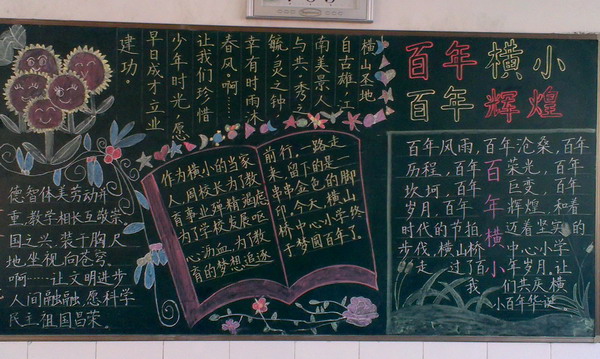 百年横小
百年辉煌
横山区地
自古雄,江
南美景人
与共,秀之
毓,灵之钟
幸有时雨沐
春风。啊
让我们珍惜
少年时光,愿
早日成才立业
建功。
德智体美劳动并
重,教学相长互敬崇
国之兴,装于胸,尺
地坐视,向苍穹。
啊……让文明进步
人间融融,愿科学
民主祖国昌荣。
作为横小的当家
人,周校长为了教
育事业殚精竭虑
为了学校发展呕
心沥血,为了教
育的梦想追逐
前行。一路走
来,留下的是一
串串金色的脚
印。今天,横山
桥中心小学终
于梦圆百年了。
百年风雨,百年沧桑,百年
历程,百年荣光,百年
坎坷,百年巨变,百年
岁月,百年辉煌,和着
时代的节拍,迈着坚实的
步伐,横山桥中心小学
走过了百年岁月。让
我们共庆横
小百年华诞。
百年横小